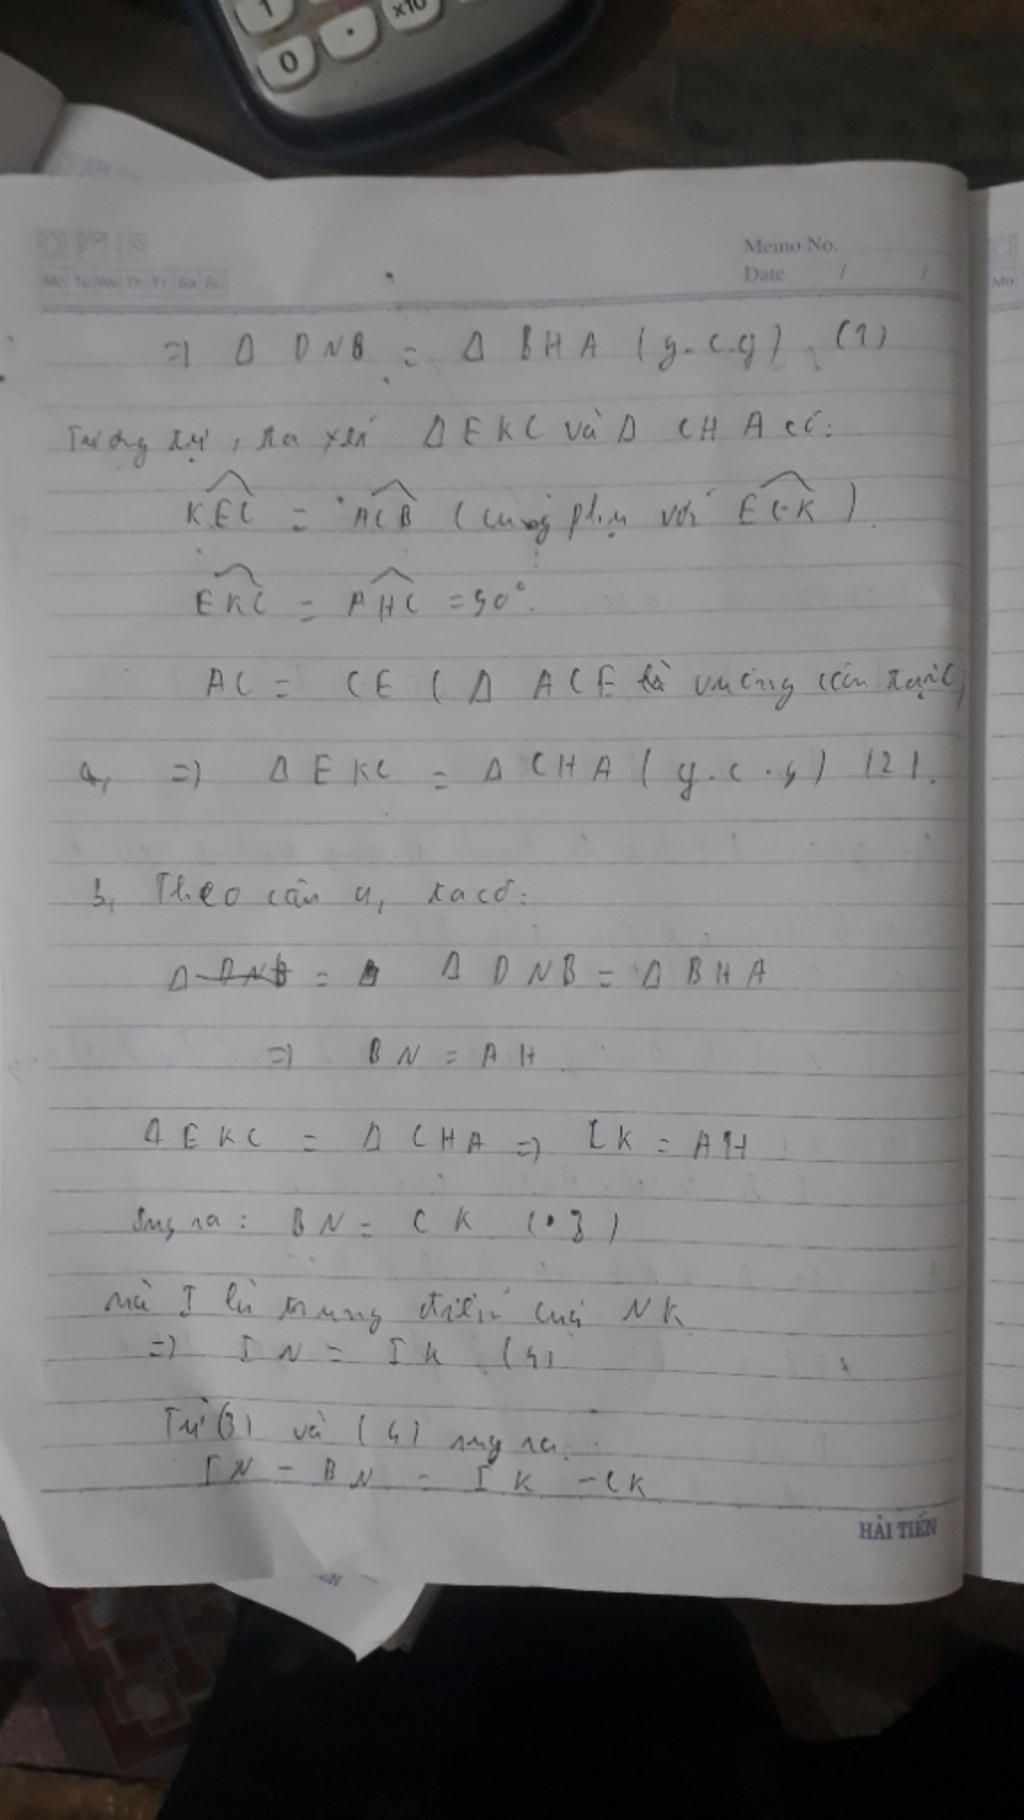 1
x10
0
.
Memo No.
Mo Tu We Th Fr Sa Su
Date / /
Mo
=) Δ DNB = Δ BHA (g.c.g). (1)
Tương tự, ta xét Δ EKC và Δ CHA có:
KEC = ACB (cùng phụ với ECK).
EKC = AHC = 90°.
AC = CE (Δ ACE là vuông cân tại C)
a, =) Δ EKC = Δ CHA (g.c.g) (2).
b, Theo câu a, ta có:
Δ DNB = Δ Δ DNB = Δ BHA
=) BN = AH
Δ EKC = Δ CHA =) CK = AH
Suy ra: BN = CK (3)
mà I là trung điểm của NK
=) IN = IK (4)
Từ (3) và (4) suy ra:
IN - BN = IK - CK
HẢI TIẾN